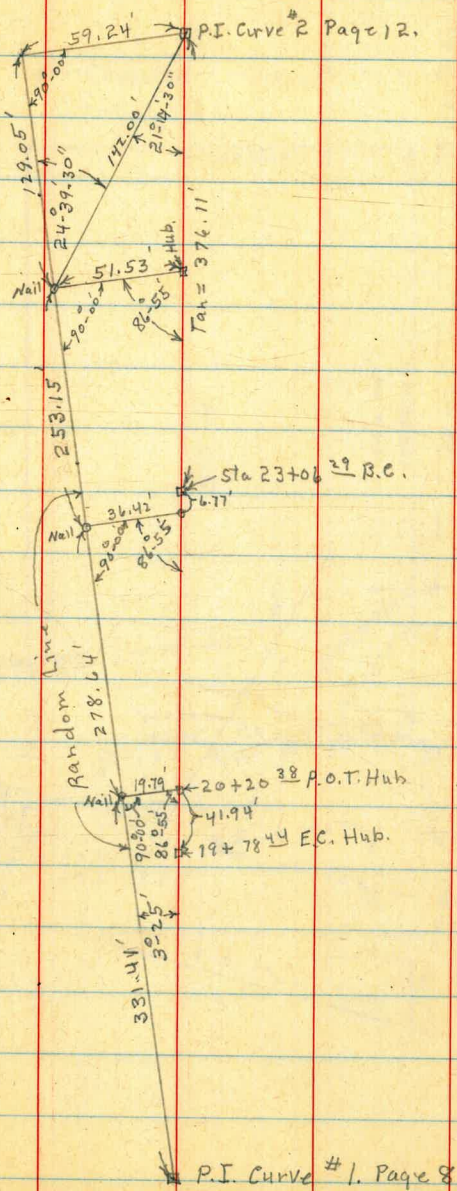 59.24'
P.I. Curve #2 Page 12.
90°-00'
129.05'
142.00'
21°-14'-30"
24°-39'-30"
51.53'
Hub.
Nail
90°-00'
86°-55'
Tan = 376.11'
253.15'
Sta 23+06 29 B.C.
6.77'
36.42'
Nail
90°-00'
86°-55'
Random Line
278.64'
19.79'
20+20 38 P.O.T. Hub
Nail
41.94'
90°-00'
86°-55'
19+78 44 E.C. Hub.
3°-25'
331.41'
P.I. Curve #1. Page 8